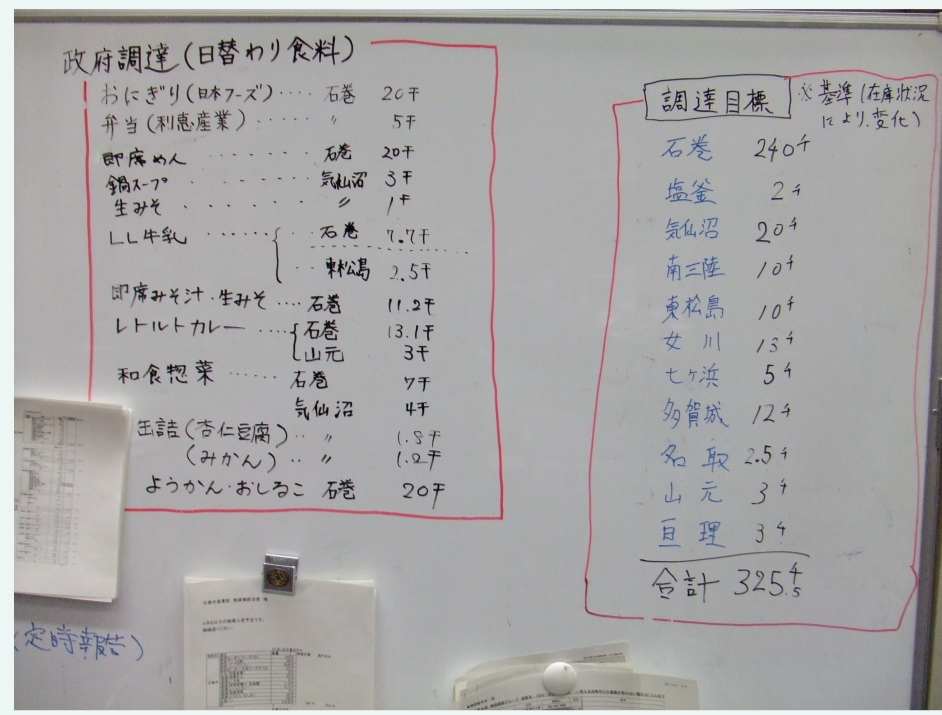 政府調達(日替わり食料)
おにぎり(日本フーズ)‥‥ 石巻 20千
弁当(利恵産業)‥‥‥ 〃 5千
即席めん ‥‥‥ 石巻 20千
鍋スープ ‥‥‥ 気仙沼 3千
生みそ ‥‥‥ 〃 1千
LL牛乳 ‥‥‥ 石巻 7.7千
東松島 2.5千
即席みそ汁・生みそ ‥‥ 石巻 11.2千
レトルトカレー ‥‥ 石巻 13.1千
山元 3千
和食惣菜 ‥‥‥ 石巻 7千
気仙沼 4千
缶詰(杏仁豆腐)‥ 〃 1.8千
(みかん)‥ 〃 1.2千
ようかん・おしるこ 石巻 20千
調達目標
※基準(在庫状況
により、変化)
石巻 240千
塩釜 2千
気仙沼 20千
南三陸 10千
東松島 10千
女川 13千
七ヶ浜 5千
多賀城 12千
名取 2.5千
山元 3千
亘理 3千
合計 325.5千
(定時報告)